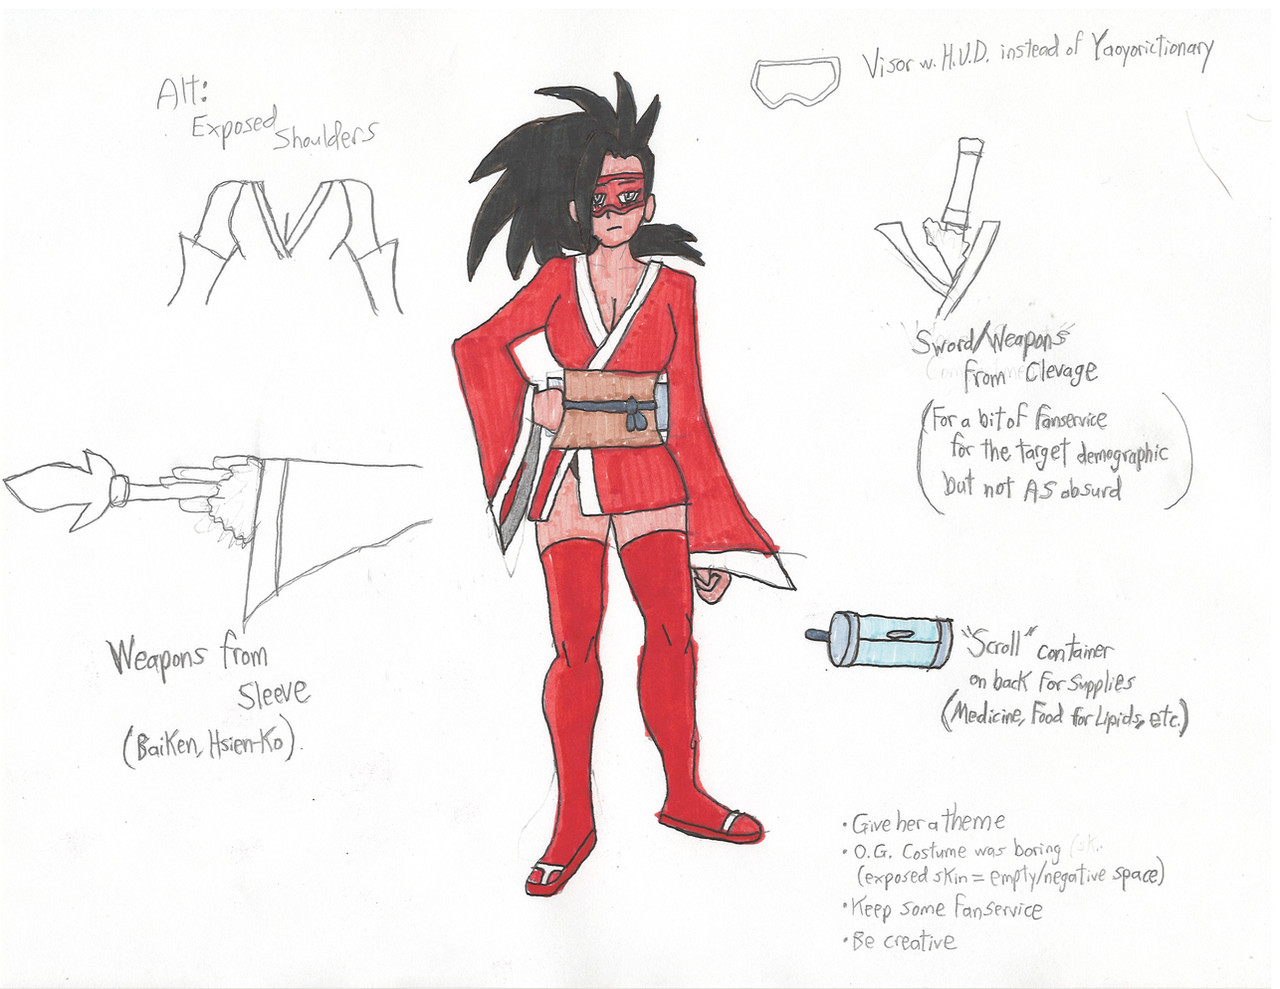 Alt:
Exposed
Shoulders
Visor w. H.U.D. instead of Yaoyorictionary
Sword/Weapons
from Clevage
(For a bit of fanservice
for the target demographic
but not AS absurd)
Weapons from
Sleeve
(Baiken, Hsien-Ko).
"Scroll" container
on back for supplies
(Medicine, Food for Lipids, etc.)
• Give her a theme
• O.G. Costume was boring
(exposed skin = empty/negative space)
• Keep some fanservice
• Be creative